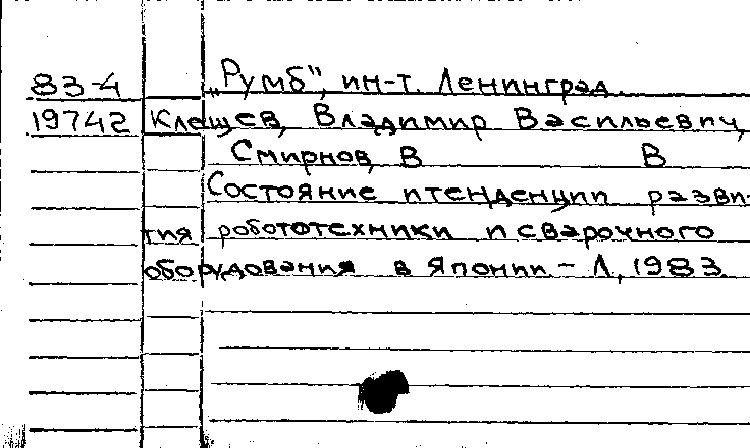 83-4 „Румб", ин-т. Ленинград.
19742 Клещев, Владимир Васильевич,
Смирнов, В В
Состояние и тенденции разви-
тия робототехники и сварочного
оборудования в Японии - Л, 1983.